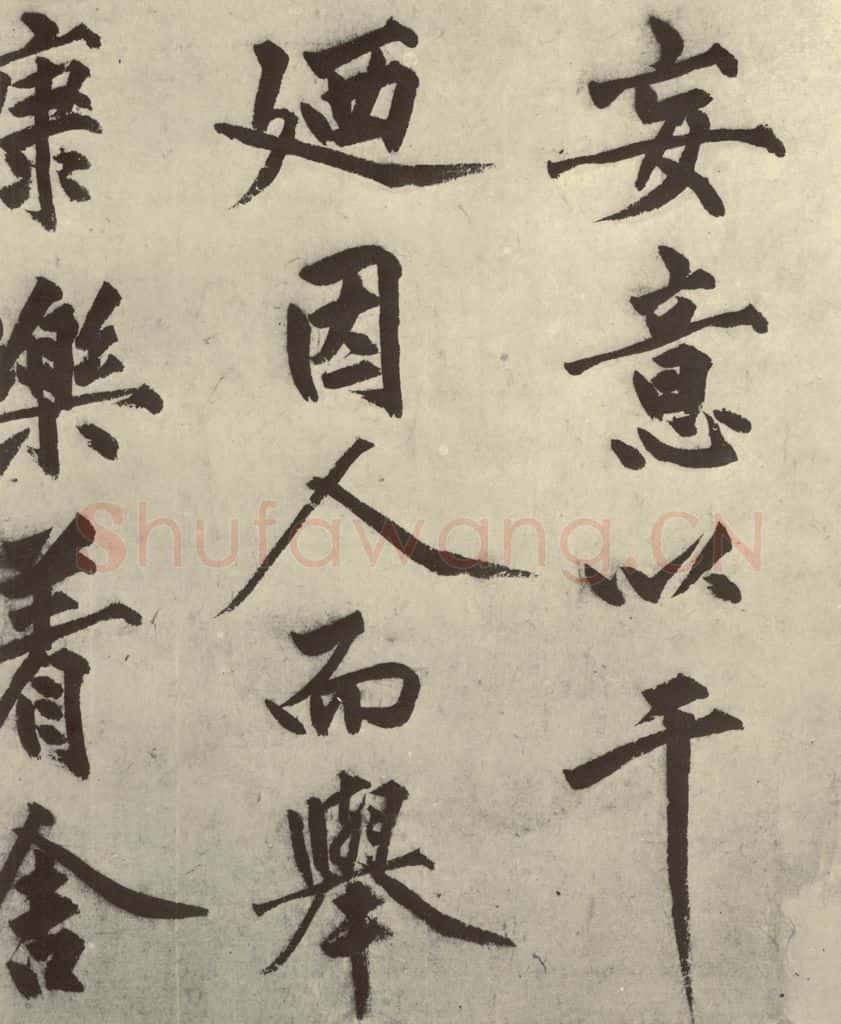 妄意以干
廼因人而舉
康樂着舍
Shufawang.CN